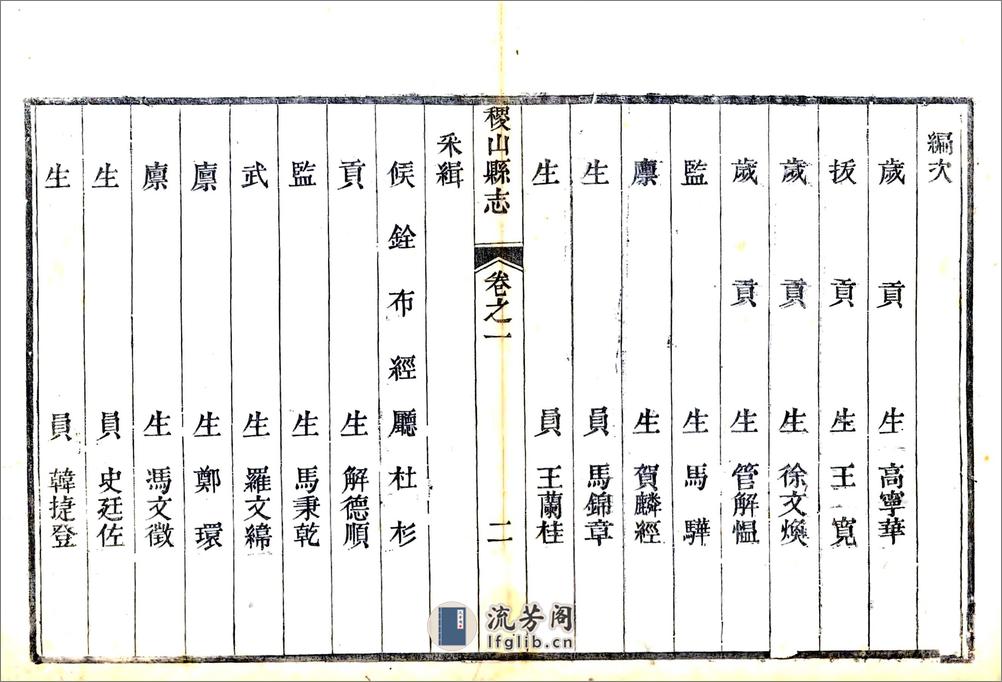 編次
歲貢生高寧華
拔貢生王寬
歲貢生徐文煥
歲貢生管解愠
監生馬驊
廪生賀麟經
生員馬錦章
生員王蘭桂
稷山縣志 卷之一 二
采緝
候銓布經廳杜杉
貢生解德順
監生馬秉乾
武生羅文綿
廪生鄭環
廪生馮文徵
生員史廷佐
生員韓捷登
流芳阁
lfglib.cn